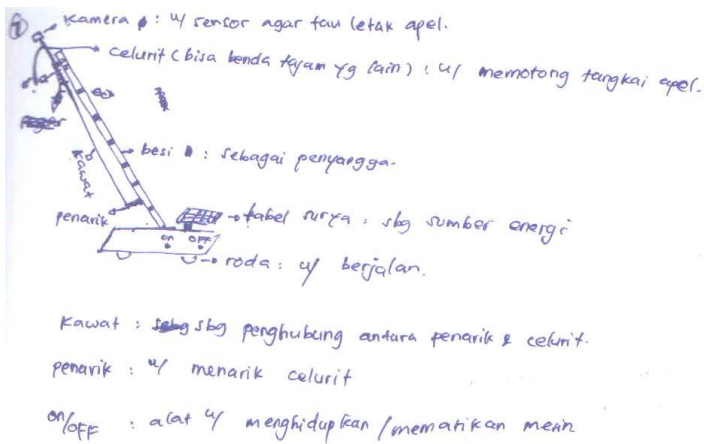 kamera : u/ sensor agar tau letak apel.
celurit (bisa benda tajam yg lain) : u/ memotong tangkai apel.
besi : sebagai penyangga.
kawat
penarik
tabel surya : sbg sumber energi
on OFF
roda : u/ berjalan.
Kawat : sbg penghubung antara penarik & celurit.
penarik : u/ menarik celurit
on/OFF : alat u/ menghidupkan / mematikan mesin